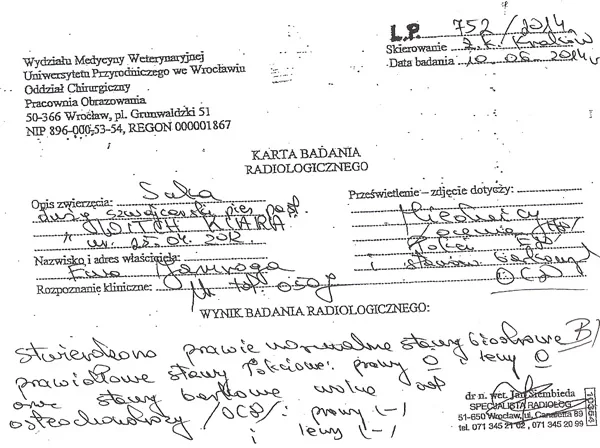 L.P. 752/2014
Skierowanie Z.K. Kraków
Data badania 10.06.2014
Wydziału Medycyny Weterynaryjnej
Uniwersytetu Przyrodniczego we Wrocławiu
Oddział Chirurgiczny
Pracownia Obrazowania
50-366 Wrocław, pl. Grunwaldzki 51
NIP 896-000-53-54, REGON 000001867
KARTA BADANIA
RADIOLOGICZNEGO
Opis zwierzęcia: Suka
duży szwajcarski pies past.
KIARA"
ur. 22.04.2012
Nazwisko i adres właściciela:
Ewa
Rozpoznanie kliniczne:
Nr tat. 050
Prześwietlenie – zdjęcie dotyczy:
Miednicy
łokci ED
i stawów barkowych
OCD
WYNIK BADANIA RADIOLOGICZNEGO:
Stwierdzono prawie normalne stawy biodrowe B)
prawidłowe stawy łokciowe: prawy 0 i lewy 0
oraz stawy barkowe wolne od
osteochondrozy /OCD/: prawy (-)
i lewy (-)
dr n. wet. Jan Siembieda
SPECJALISTA RADIOLOG
51-650 Wrocław, ul. Canaletta 89
tel. 071 345 21 02, 071 345 20 99